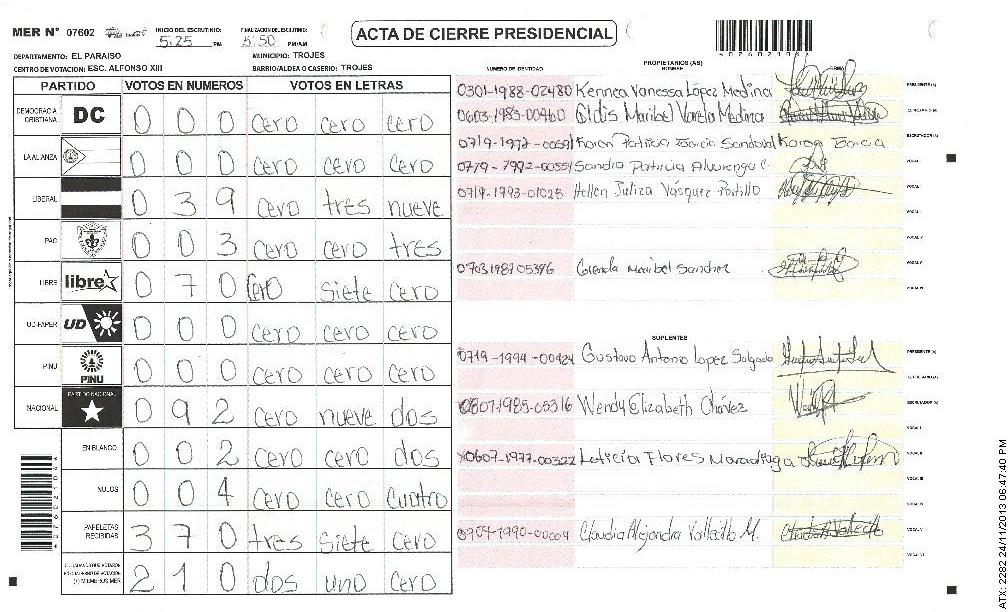 MER Nº 07602 INICIO DEL ESCRUTINIO: 5:25 PM FINALIZACION DEL ESCRUTINIO: 5:50 PM/AM
ACTA DE CIERRE PRESIDENCIAL
DEPARTAMENTO: EL PARAISO MUNICIPIO: TROJES
CENTRO DE VOTACION: ESC. ALFONSO XIII BARRIO/ALDEA O CASERIO: TROJES
PARTIDO VOTOS EN NUMEROS VOTOS EN LETRAS
DEMOCRACIA CRISTIANA DC 0 0 0 cero cero cero
LA ALIANZA 0 0 0 cero cero cero
LIBERAL 0 3 9 cero tres nueve
PAC 0 0 3 cero cero tres
LIBRE libre 0 7 0 cero siete cero
UD-FAPER UD 0 0 0 cero cero cero
PINU PINU 0 0 0 cero cero cero
NACIONAL PARTIDO NACIONAL 0 9 2 cero nueve dos
EN BLANCO 0 0 2 cero cero dos
NULOS 0 0 4 cero cero cuatro
PAPELETAS RECIBIDAS 3 7 0 tres siete cero
2 1 0 dos uno cero
PROPIETARIOS (AS)
NUMERO DE IDENTIDAD NOMBRE FIRMA
0301-1988-02480 Kennea Vanessa López Medina PRESIDENTE (A)
0603-1985-00460 Eldis Maribel Varela Medina
0719-1992-00591 Karen Patricia Garcia Sandoval Karen Garcia ESCRUTADOR (A)
Sandra Patricia Alvarenga C. VOCAL I
0719-1993-01025 Hellen Juliza Vásquez Portillo VOCAL
VOCAL
VOCAL
0703198705396 Brenda Maribel Sanchez VOCAL
VOCAL
SUPLENTES
0719-1994-00424 Gustavo Antonio Lopez Salgado PRESIDENTE (A)
SECRETARIO (A)
0807-1985-05316 Wendy Elizabeth Chávez ESCRUTADOR (A)
VOCAL I
0607-1977-00322 Leticia Flores Maradiaga VOCAL II
VOCAL III
VOCAL IV
0704-1990-00004 Claudia Alejandra Valladto M. VOCAL V
VOCAL VI
ATX: 2282 24/11/2013 06:47:40 PM